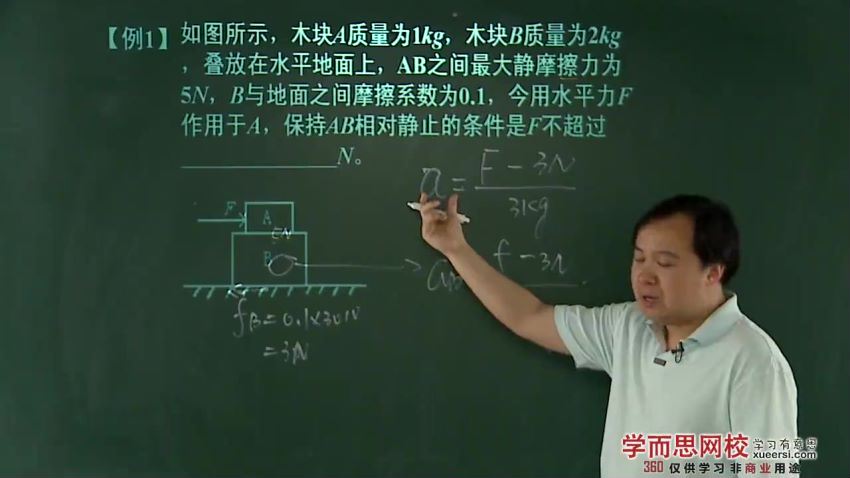 【例1】如图所示，木块A质量为1kg，木块B质量为2kg
，叠放在水平地面上，AB之间最大静摩擦力为
5N，B与地面之间摩擦系数为0.1，今用水平力F
作用于A，保持AB相对静止的条件是F不超过
N。
a = F - 3N
3kg
F
A
5N
B
f - 3N
fB = 0.1×30N
= 3N
学而思网校 学习有意思
xueersi.com
360 仅供学习 非商业用途